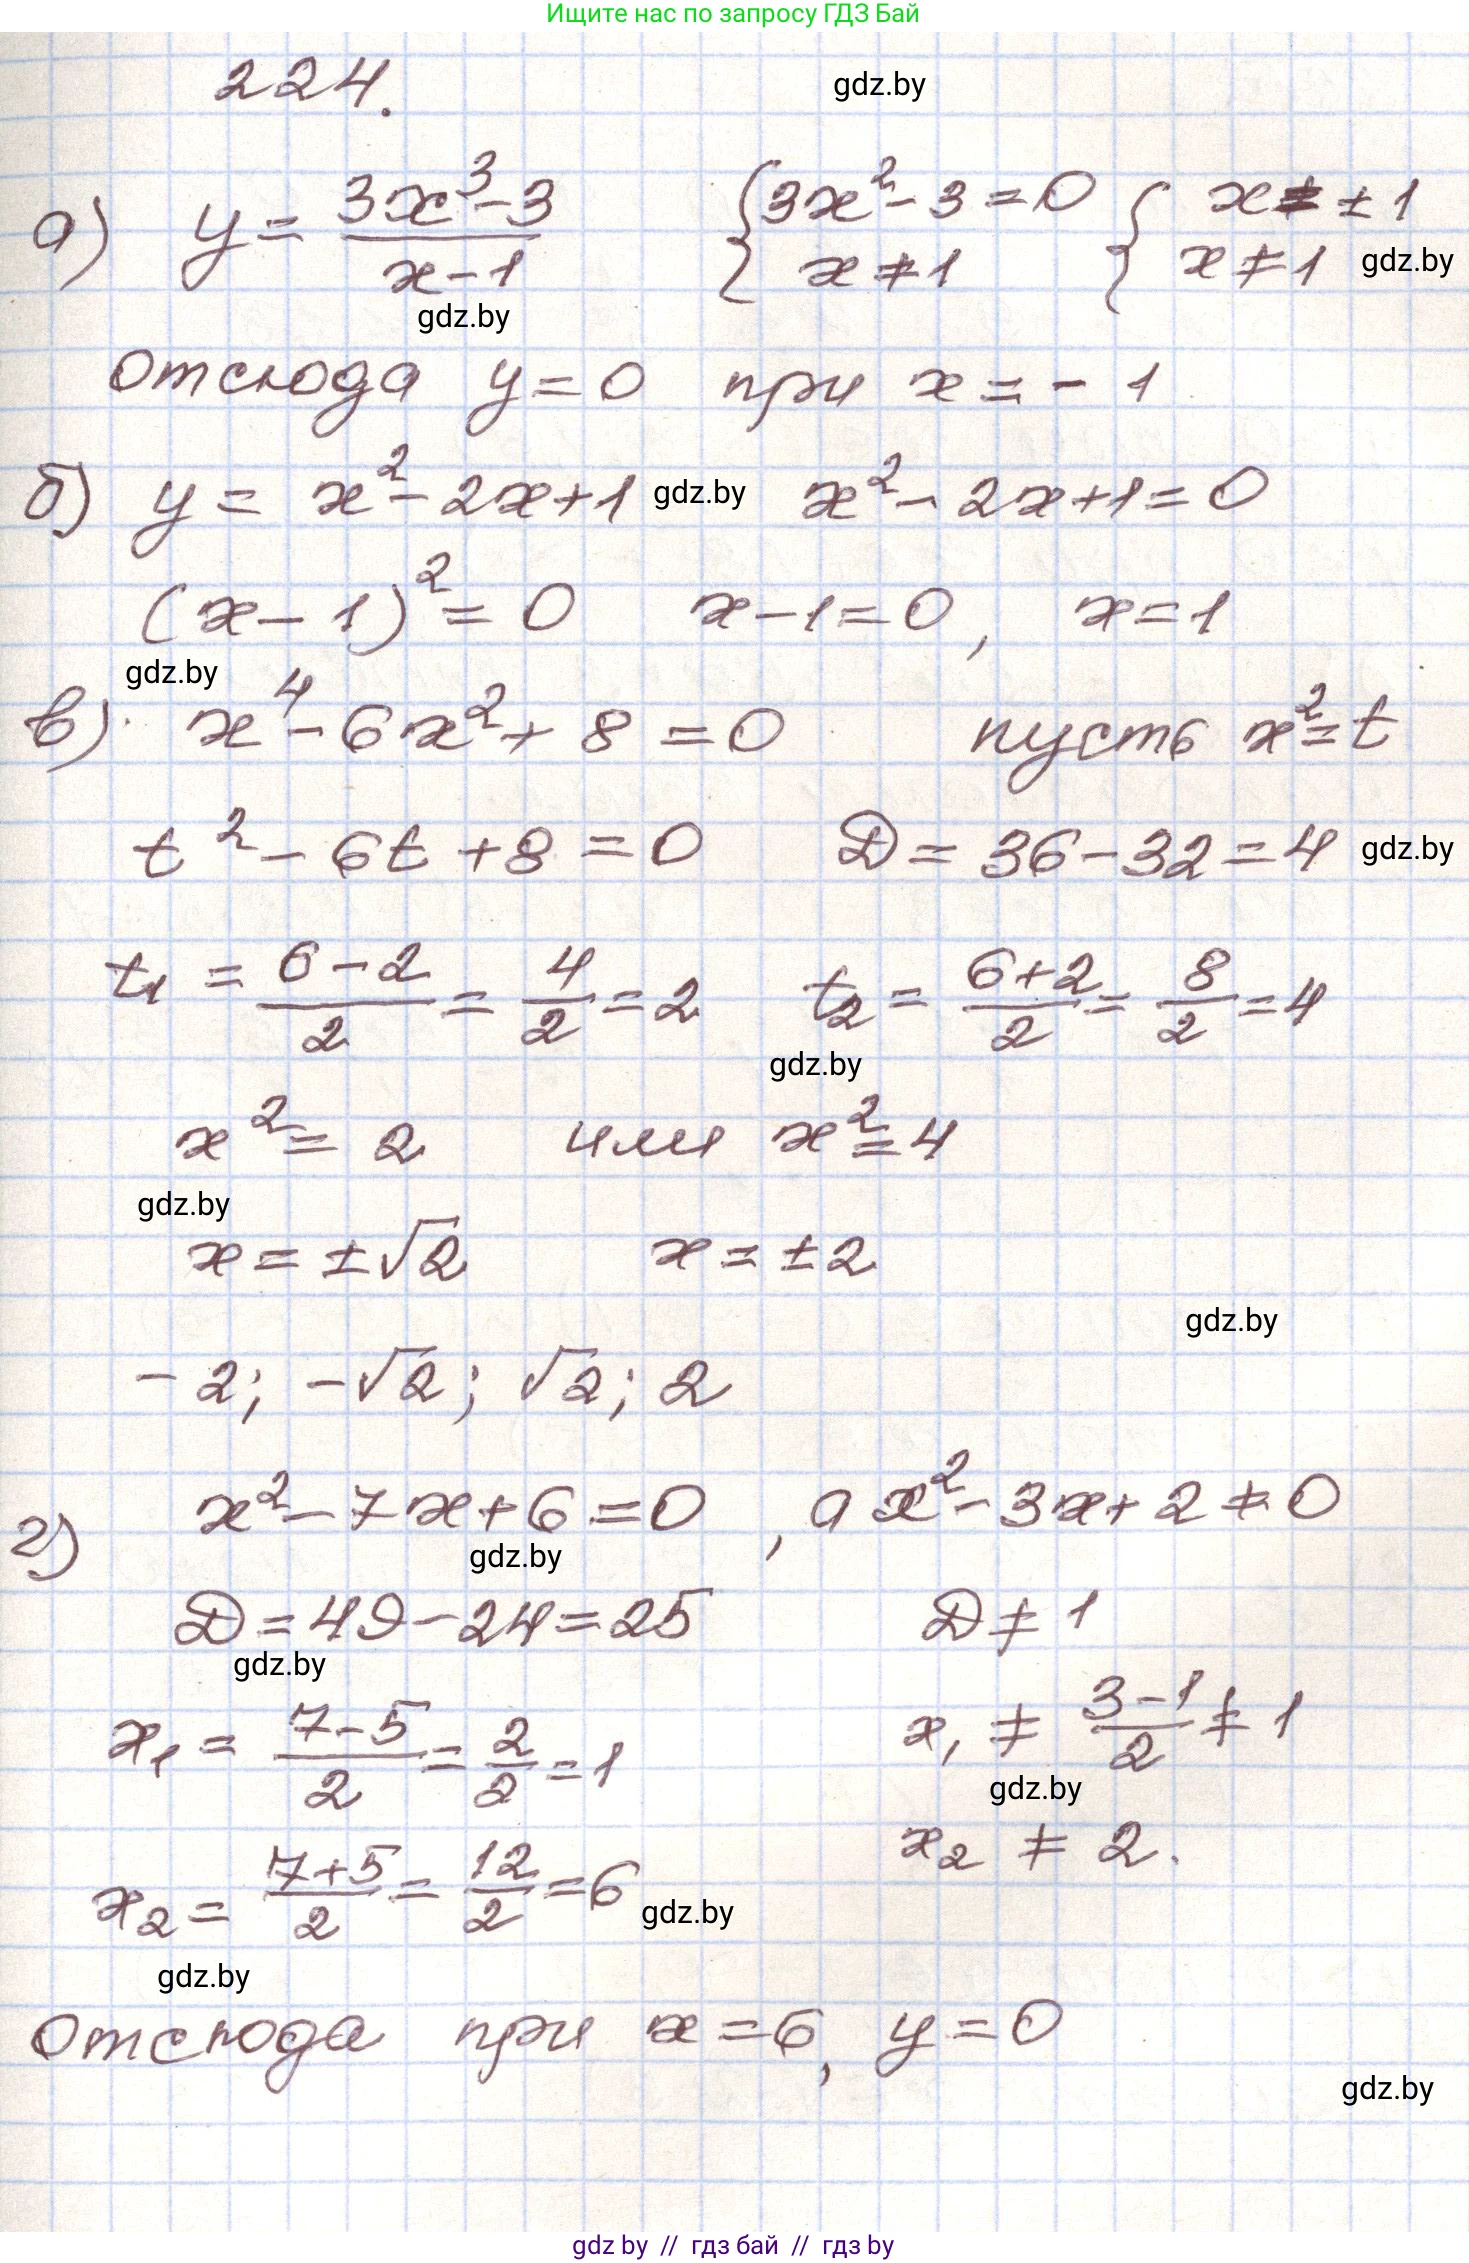 Ищите нас по запросу ГДЗ Бай
224.
gdz.by
а) y = (3x³-3)/(x-1) { 3x²-3=0 { x=±1
x≠1 x≠1 gdz.by
gdz.by
Отсюда y=0 при x=-1
б) y = x²-2x+1 gdz.by x²-2x+1=0
(x-1)²=0 x-1=0, x=1
gdz.by
в) x⁴-6x²+8=0 пусть x²=t
t²-6t+8=0 D=36-32=4 gdz.by
t₁ = (6-2)/2 = 4/2 = 2 t₂ = (6+2)/2 = 8/2 = 4
gdz.by
x²=2 или x²=4
gdz.by
x=±√2 x=±2
gdz.by
-2; -√2; √2; 2
г) x²-7x+6=0, а x²-3x+2≠0
gdz.by
D=49-24=25 D≠1
gdz.by
x₁ = (7-5)/2 = 2/2 = 1 x₁ ≠ (3-1)/2 ≠ 1
gdz.by
x₂ = (7+5)/2 = 12/2 = 6 gdz.by x₂ ≠ 2.
gdz.by
Отсюда при x=6, y=0
gdz.by
gdz by // гдз бай // gdz by